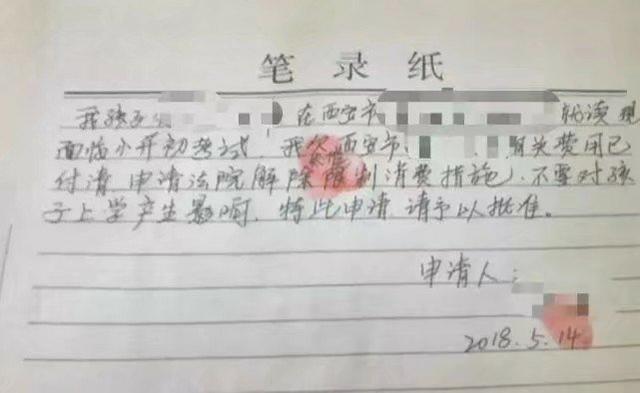 笔录纸
我孩子 在西安市 就读现
面临小升初考试,我欠西安市 有关费用已
付清,申请法院解除限制消费措施,不要对孩
子上学产生影响,特此申请,请予以批准。
申请人:
2018.5.14